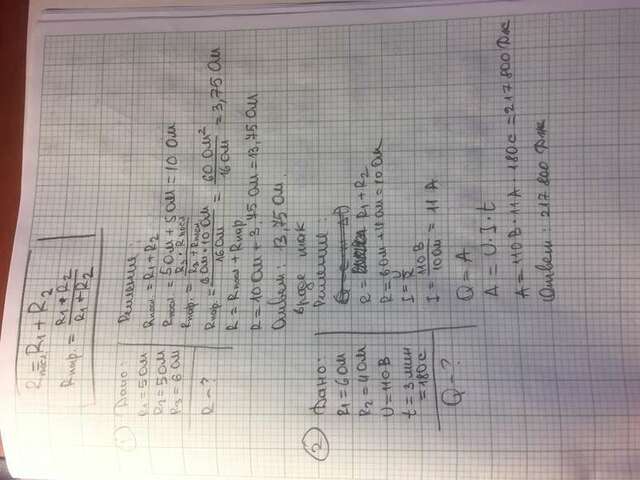 Rпосл. = R1 + R2
Rпар. = R1 * R2 / R1 + R2
1 Дано:
R1 = 5 Ом
R2 = 5 Ом
R3 = 6 Ом
R - ?
Решение:
Rпосл. = R1 + R2
Rпосл. = 5 Ом + 5 Ом = 10 Ом
Rпар. = R3 · Rпосл / R3 + Rпосл
Rпар. = 6 Ом · 10 Ом / 16 Ом = 60 Ом² / 16 Ом = 3,75 Ом
R = Rпосл + Rпар
R = 10 Ом + 3,75 Ом = 13,75 Ом
Ответ: 13,75 Ом.
вроде так
2 Дано:
R1 = 6 Ом
R2 = 4 Ом
U = 110 В
t = 3 мин
= 180 с
Q - ?
Решение:
R = R1 + R2
R = 6 Ом + 4 Ом = 10 Ом
I = U / R
I = 110 В / 10 Ом = 11 А
Q = A
A = U · I · t
A = 110 В · 11 А · 180 с = 217 800 Дж
Ответ: 217 800 Дж